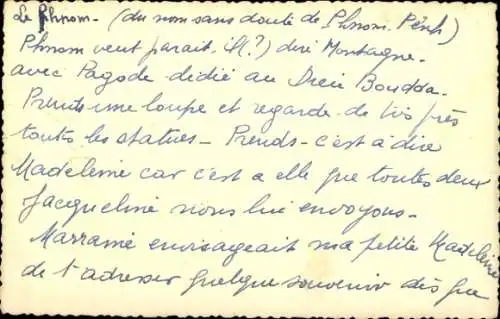 Le Phnom - (du nom sans doute de Phnom. Pênh)
Phnom veut parait. il (?) dire Montagne.
avec Pagode dédié au Dieu Boudda.
Prends une loupe et regarde de très près
toutes les statues - Prends - c'est à dire
Madeleine car c'est a elle que toutes deux
Jacqueline nous lui envoyons -
Marraine envisageait ma petite Madeleine
de t'adresser quelque souvenir dès que